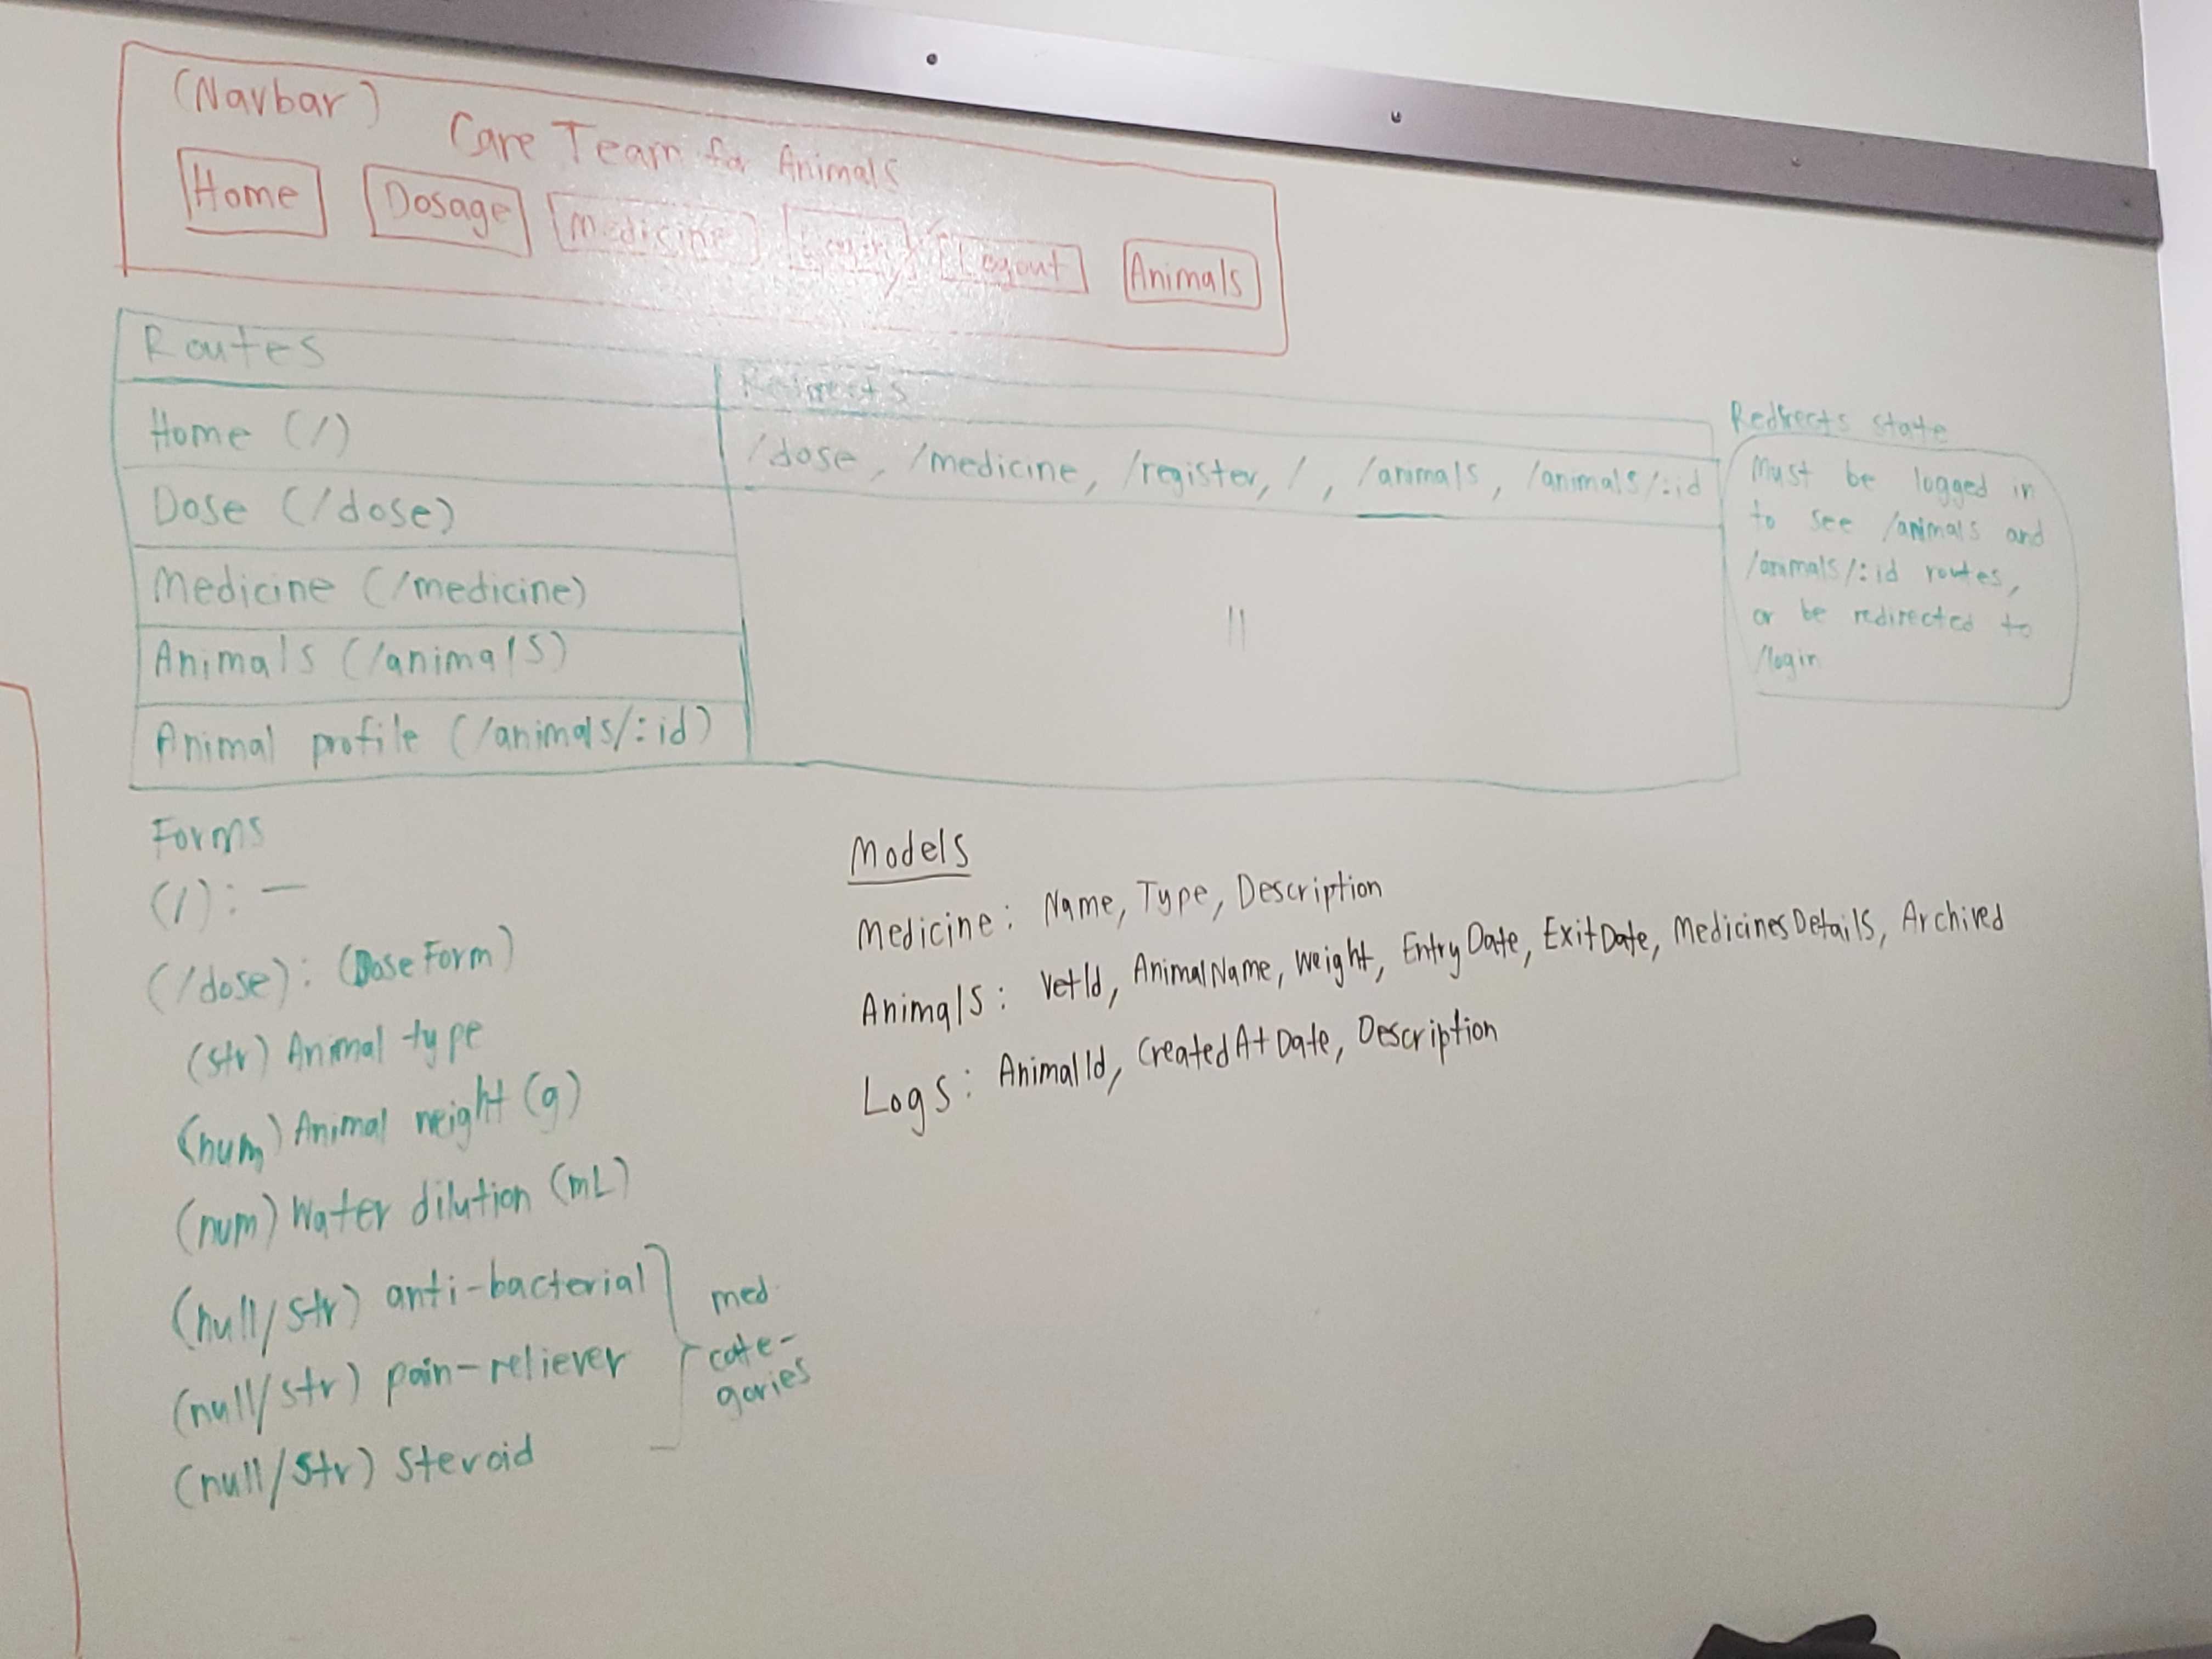 (Navbar)
Care Team for Animals
Home Dosage Medicine Login/ Logout Animals
Routes
Redirects
Home (/)
/dose, /medicine, /register, /, /animals, /animals/:id
Dose (/dose)
Medicine (/medicine)
"
Animals (/animals)
Animal profile (/animals/:id)
Redirects state
Must be logged in
to see /animals and
/animals/:id routes,
or be redirected to
/login
Forms
(/): —
(/dose): (Dose Form)
(str) Animal type
(num) Animal weight (g)
(num) Water dilution (mL)
(null/str) anti-bacterial
(null/str) pain-reliever
(null/str) Steroid
med
cate-
gories
Models
Medicine: Name, Type, Description
Animals: VetId, AnimalName, Weight, EntryDate, ExitDate, MedicinesDetails, Archived
Logs: AnimalId, CreatedAtDate, Description